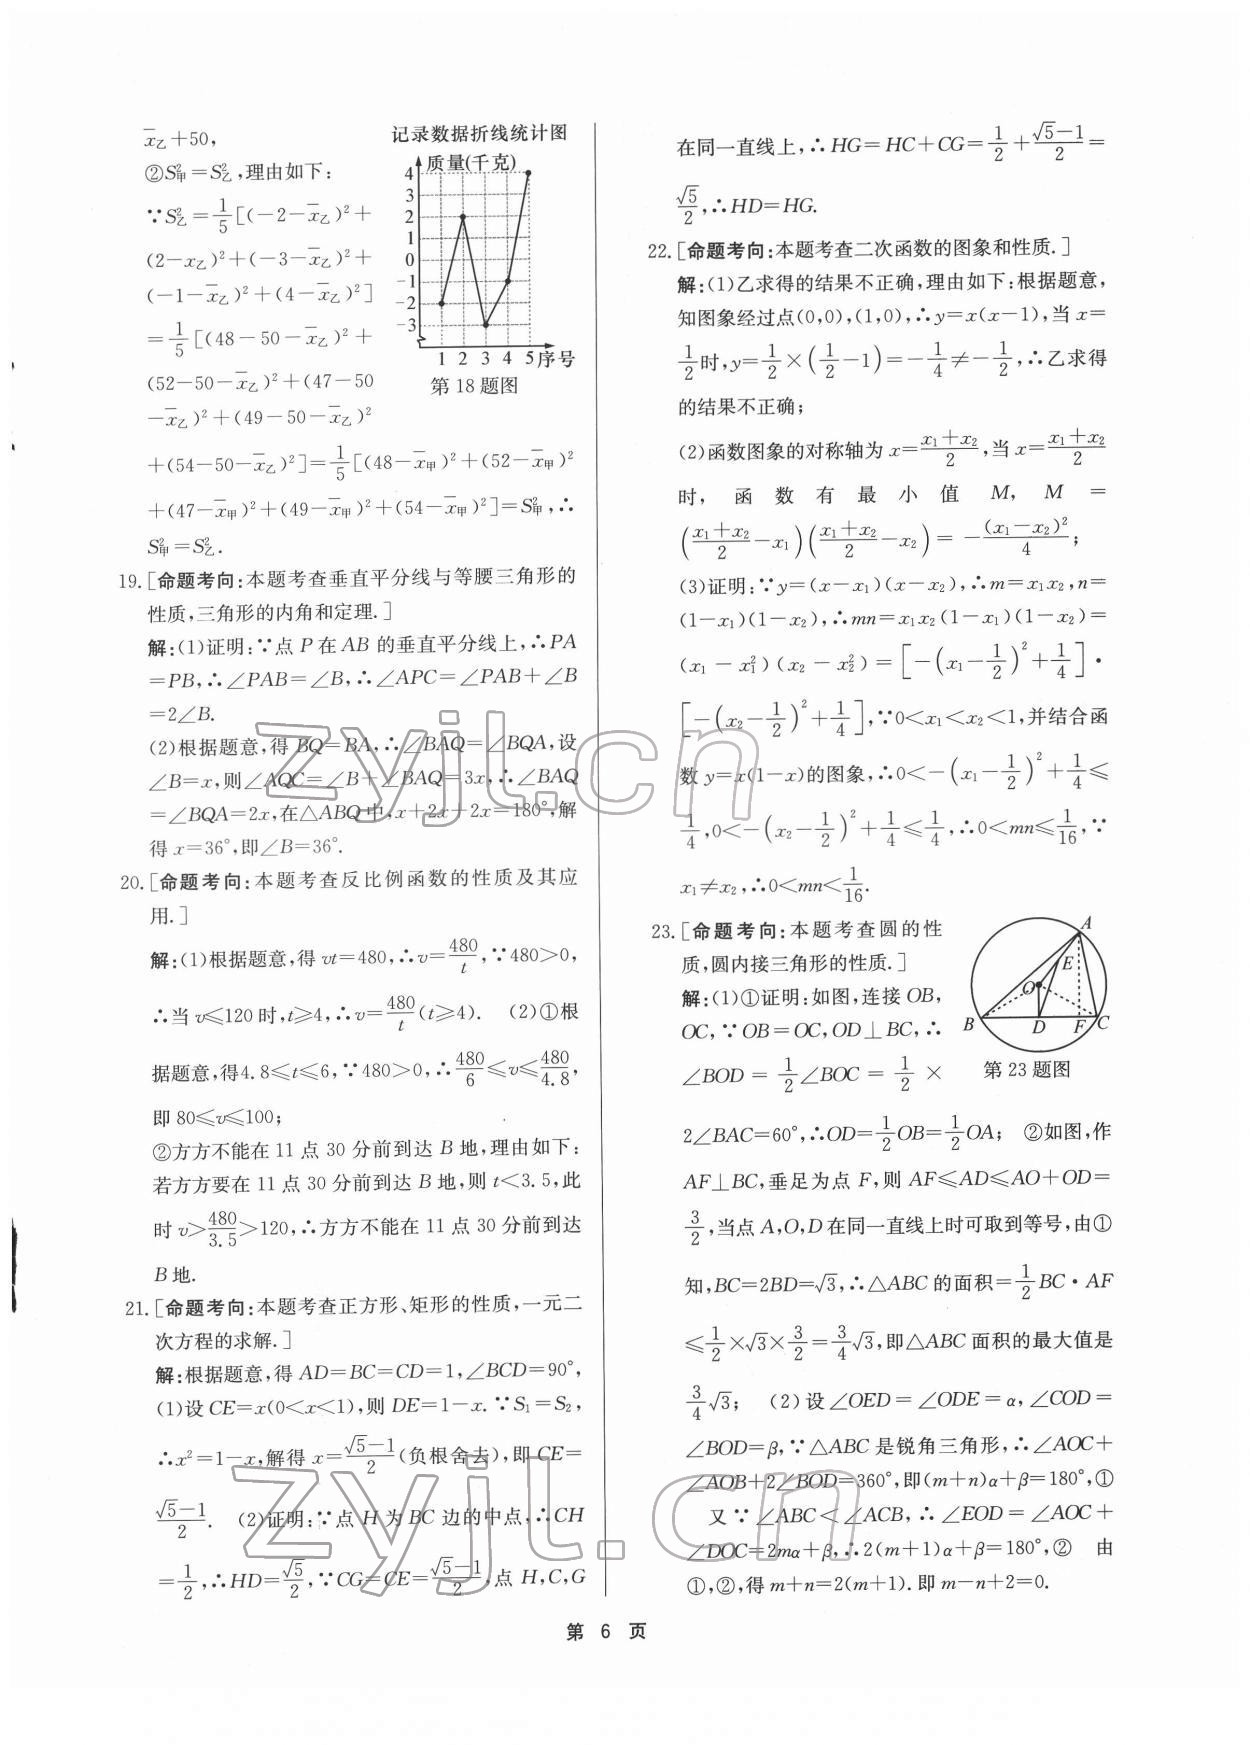 x̄乙+50,
②S²甲=S²乙,理由如下:
∵S²乙=1/5[(-2-x̄乙)²+
(2-x乙)²+(-3-x̄乙)²+
(-1-x̄乙)²+(4-x̄乙)²]
=1/5[(48-50-x̄乙)²+
(52-50-x̄乙)²+(47-50
-x̄乙)²+(49-50-x̄乙)²
+(54-50-x̄乙)²]=1/5[(48-x̄甲)²+(52-x̄甲)²
+(47-x̄甲)²+(49-x̄甲)²+(54-x̄甲)²]=S²甲,∴
S²甲=S²乙.
记录数据折线统计图
质量(千克)
4
3
2
1
0
-1
-2
-3
1 2 3 4 5序号
第18题图
19.[命题考向:本题考查垂直平分线与等腰三角形的
性质,三角形的内角和定理.]
解:(1)证明:∵点P在AB的垂直平分线上,∴PA
=PB,∴∠PAB=∠B,∴∠APC=∠PAB+∠B
=2∠B.
(2)根据题意,得BQ=BA,∴∠BAQ=∠BQA,设
∠B=x,则∠AQC=∠B+∠BAQ=3x,∴∠BAQ
=∠BQA=2x,在△ABQ中,x+2x+2x=180°,解
得x=36°,即∠B=36°.
20.[命题考向:本题考查反比例函数的性质及其应
用.]
解:(1)根据题意,得vt=480,∴v=480/t,∵480>0,
∴当v≤120时,t≥4,∴v=480/t(t≥4). (2)①根
据题意,得4.8≤t≤6,∵480>0,∴480/6≤v≤480/4.8,
即80≤v≤100;
②方方不能在11点30分前到达B地,理由如下:
若方方要在11点30分前到达B地,则t<3.5,此
时v>480/3.5>120,∴方方不能在11点30分前到达
B地.
21.[命题考向:本题考查正方形、矩形的性质,一元二
次方程的求解.]
解:根据题意,得AD=BC=CD=1,∠BCD=90°,
(1)设CE=x(0<x<1),则DE=1-x.∵S₁=S₂,
∴x²=1-x,解得x=(√5-1)/2(负根舍去),即CE=
(√5-1)/2. (2)证明:∵点H为BC边的中点,∴CH
=1/2,∴HD=√5/2,∵CG=CE=(√5-1)/2,点H,C,G
在同一直线上,∴HG=HC+CG=1/2+(√5-1)/2=
√5/2,∴HD=HG.
22.[命题考向:本题考查二次函数的图象和性质.]
解:(1)乙求得的结果不正确,理由如下:根据题意,
知图象经过点(0,0),(1,0),∴y=x(x-1),当x=
1/2时,y=1/2×(1/2-1)=-1/4≠-1/2,∴乙求得
的结果不正确;
(2)函数图象的对称轴为x=(x₁+x₂)/2,当x=(x₁+x₂)/2
时,函数有最小值M,M=
((x₁+x₂)/2-x₁)((x₁+x₂)/2-x₂)=-(x₁-x₂)²/4;
(3)证明:∵y=(x-x₁)(x-x₂),∴m=x₁x₂,n=
(1-x₁)(1-x₂),∴mn=x₁x₂(1-x₁)(1-x₂)=
(x₁-x₁²)(x₂-x₂²)=[-(x₁-1/2)²+1/4]·
[-(x₂-1/2)²+1/4],∵0<x₁<x₂<1,并结合函
数y=x(1-x)的图象,∴0<-(x₁-1/2)²+1/4≤
1/4,0<-(x₂-1/2)²+1/4≤1/4,∴0<mn≤1/16,∵
x₁≠x₂,∴0<mn<1/16.
23.[命题考向:本题考查圆的性
质,圆内接三角形的性质.]
解:(1)①证明:如图,连接OB,
OC,∵OB=OC,OD⊥BC,∴
∠BOD=1/2∠BOC=1/2×
A
E
O
B D F C
第23题图
2∠BAC=60°,∴OD=1/2OB=1/2OA; ②如图,作
AF⊥BC,垂足为点F,则AF≤AD≤AO+OD=
3/2,当点A,O,D在同一直线上时可取到等号,由①
知,BC=2BD=√3,∴△ABC的面积=1/2BC·AF
≤1/2×√3×3/2=3/4√3,即△ABC面积的最大值是
3/4√3; (2)设∠OED=∠ODE=α,∠COD=
∠BOD=β,∵△ABC是锐角三角形,∴∠AOC+
∠AOB+2∠BOD=360°,即(m+n)α+β=180°,①
又∵∠ABC<∠ACB,∴∠EOD=∠AOC+
∠DOC=2mα+β,∴2(m+1)α+β=180°,② 由
①,②,得m+n=2(m+1).即m-n+2=0.
第 6 页
zyjl.cn
zyjl.cn